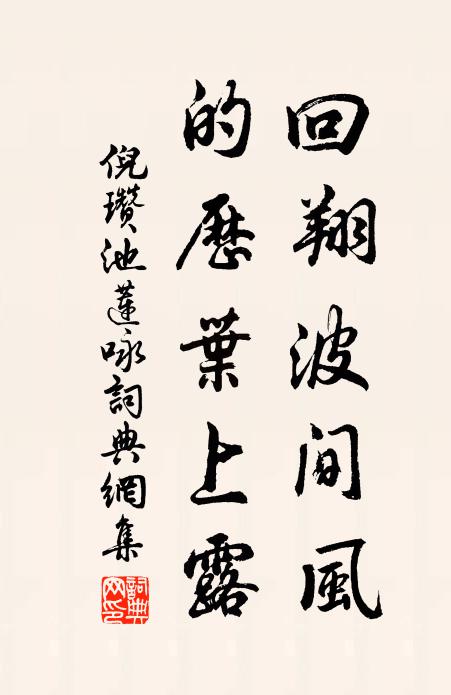 回翔波間風
的歷葉上露
倪瓚池蓮咏詞典網集
詞典網印